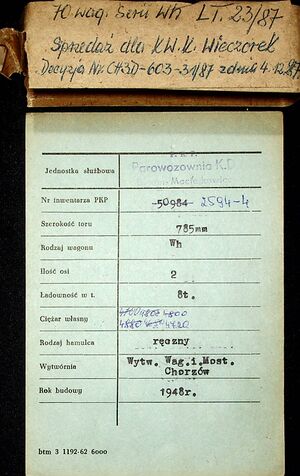 10 wag. Serii Wh LT. 23/87
Sprzedaż dla K.W.K. Wieczorek
Decyzja Nr. CH3D-603-31/87 z dnia 4.12.87
P. K. P.
Jednostka służbowa Parowozownia K.D
Nr inwentarza PKP 50984 2594-4
Szerokość toru 785mm
Rodzaj wagonu Wh
Ilość osi 2
Ładowność w t. 8t.
Ciężar własny 4700 4807 4800
4880 4720
Rodzaj hamulca ręczny
Wytwórnia Wytw. Wag.i.Most.
Chorzów
Rok budowy 1948r.
btm 3 1192-62 6000